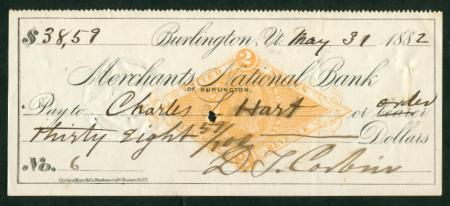 $38,59 Burlington, Vt. May 31 1882
Merchants National Bank
OF BURLINGTON.
Pay to Charles L Hart or order
thirty eight 59/100 Dollars
No. 6 D. T. Corbin